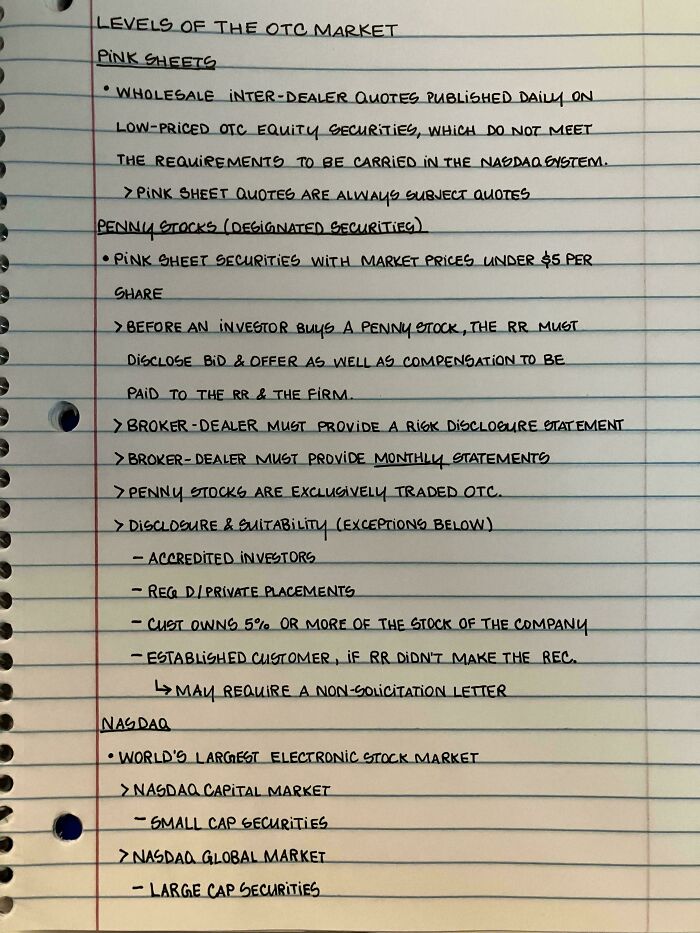 LEVELS OF THE OTC MARKET
PINK SHEETS
• WHOLESALE INTER-DEALER QUOTES PUBLISHED DAILY ON
LOW-PRICED OTC EQUITY SECURITIES, WHICH DO NOT MEET
THE REQUIREMENTS TO BE CARRIED IN THE NASDAQ SYSTEM.
> PINK SHEET QUOTES ARE ALWAYS SUBJECT QUOTES
PENNY STOCKS (DESIGNATED SECURITIES)
• PINK SHEET SECURITIES WITH MARKET PRICES UNDER $5 PER
SHARE
> BEFORE AN INVESTOR BUYS A PENNY STOCK, THE RR MUST
DISCLOSE BID & OFFER AS WELL AS COMPENSATION TO BE
PAID TO THE RR & THE FIRM.
> BROKER-DEALER MUST PROVIDE A RISK DISCLOSURE STATEMENT
> BROKER-DEALER MUST PROVIDE MONTHLY STATEMENTS
> PENNY STOCKS ARE EXCLUSIVELY TRADED OTC.
> DISCLOSURE & SUITABILITY (EXCEPTIONS BELOW)
– ACCREDITED INVESTORS
– REG D/PRIVATE PLACEMENTS
– CUST OWNS 5% OR MORE OF THE STOCK OF THE COMPANY
– ESTABLISHED CUSTOMER, IF RR DIDN'T MAKE THE REC.
↳ MAY REQUIRE A NON-SOLICITATION LETTER
NASDAQ
• WORLD'S LARGEST ELECTRONIC STOCK MARKET
> NASDAQ CAPITAL MARKET
– SMALL CAP SECURITIES
> NASDAQ GLOBAL MARKET
– LARGE CAP SECURITIES